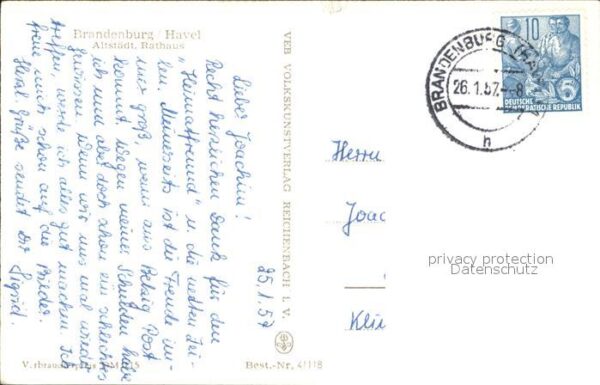 Brandenburg / Havel
Altstädt. Rathaus
25.1.57
Liebe Joachim!
Recht herzlichen Dank für den
"Heimatfreund" u. die netten Zei-
len. Meinerseits ist die Freude im-
mer groß, wenn aus Belzig Post
kommt. Wegen meiner Schulden habe
ich nun aber doch schon ein schlechtes
Gewissen. Wenn wir uns mal wieder
treffen, werde ich alles gut machen. Ich
freue mich schon auf die Bilder.
Herzl. Grüße sendet Dir Sigrid.
VEB VOLKSKUNSTVERLAG REICHENBACH I. V.
Verbraucherpreis
Best.-Nr. 41118
BRANDENBURG (HAVEL)
26.1.57.-8
h
10
DEUTSCHE
DEMOKRATISCHE REPUBLIK
Herrn
Joac
Kli
privacy protection
Datenschutz